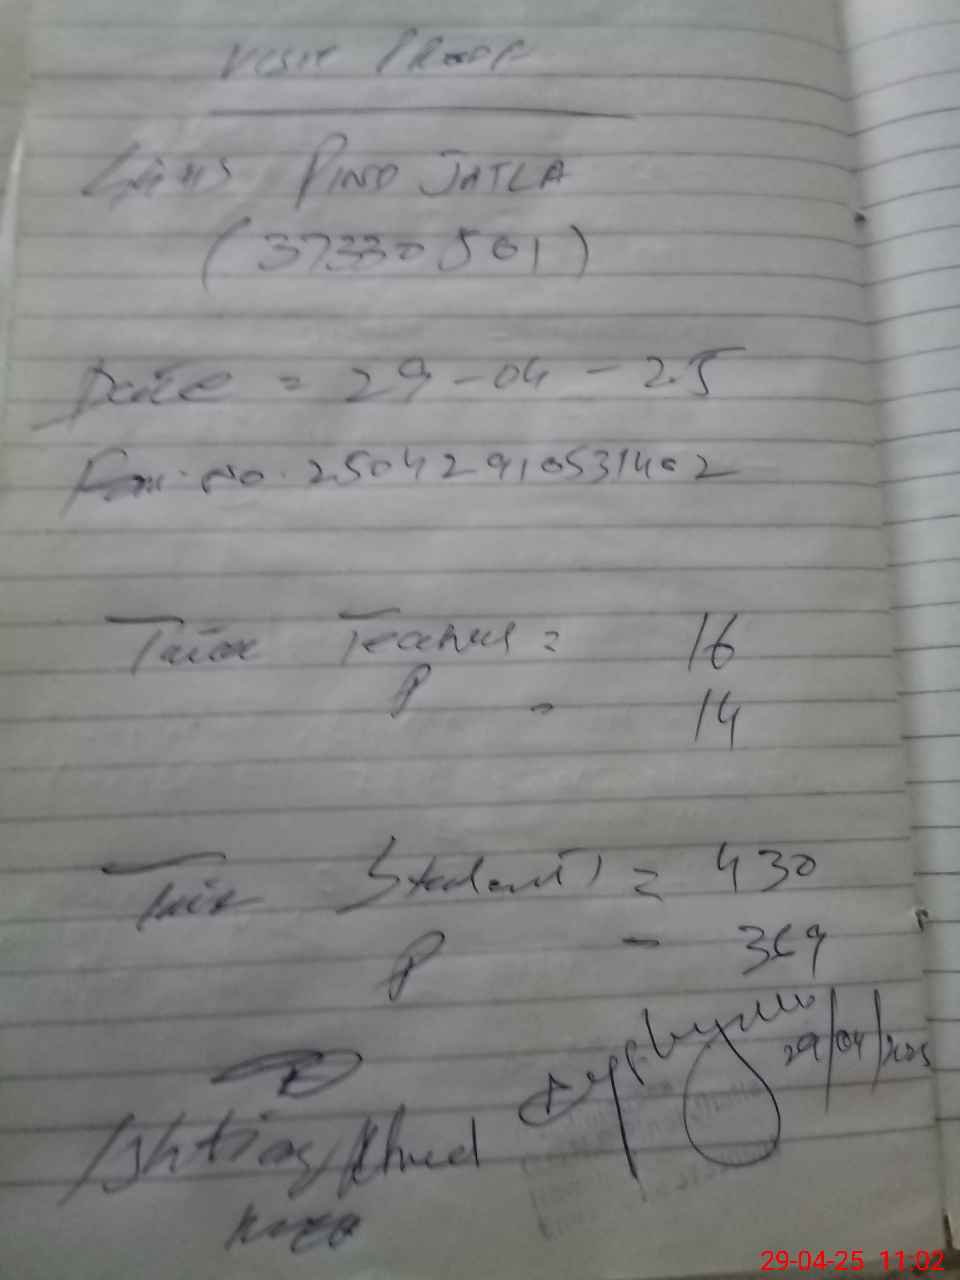 Visit Proof
GGHS PIND JATLA
(37330501)
Date = 29-04-25
Fom. no. 25042910531402
Total Teachers = 16
P - 14
Total Students = 430
P - 369
29/04/2025
Ishtiaq Ahmed
29-04-25 11:02